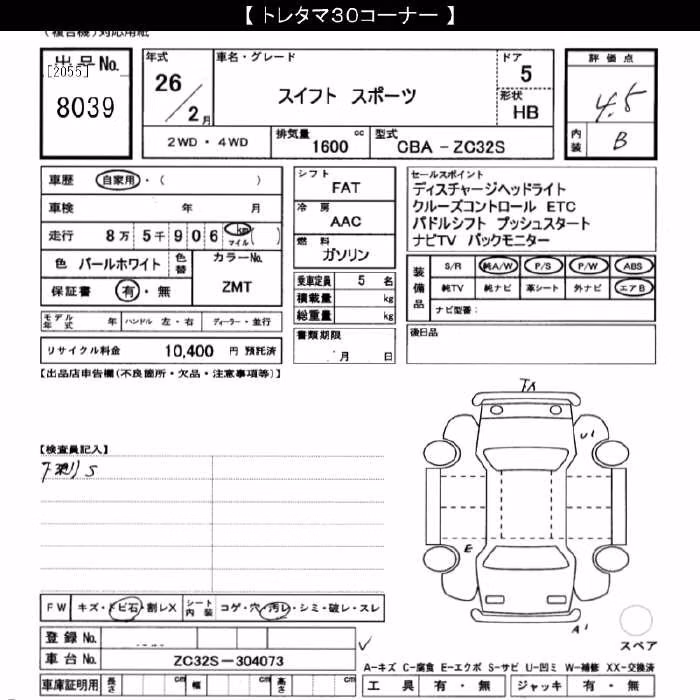 【 トレタマ３０コーナー 】
(複合機)対応用紙
出品No.
[2055]
8039
年式
26
2月
車名・グレード
スイフト スポーツ
ドア
5
形状
HB
評価点
4.5
内装
B
2WD・4WD
排気量 cc
1600
型式
CBA - ZC32S
車歴 自家用・( )
車検 年 月
走行 8万 5千 9 0 6 km マイル ( )
色 パールホワイト 色替
カラーNo.
ZMT
保証書 有・無
シフト
FAT
冷房
AAC
燃料
ガソリン
乗車定員 5 名
積載量 kg
総重量 kg
セールスポイント
ディスチャージヘッドライト
クルーズコントロール ETC
パドルシフト プッシュスタート
ナビTV バックモニター
装備品
S/R 純A/W P/S P/W ABS
純TV 純ナビ 革シート 外ナビ エアB
ナビ型番：
モデル年式 年 ハンドル 左・右 ディーラー・並行
リサイクル料金 10,400 円 預託済
書類期限
月 日
後日品
【出品店申告欄(不良箇所・欠品・注意事項等)】
【検査員記入】
下剥リS
U1
E
A1
FW キズ・トビ石・割レX シート内装 コゲ・穴・汚レ・シミ・破レ・スレ
登録 No.
車台 No. ZC32S-304073
車庫証明用 長さ cm 幅 cm 高さ cm
スペア
A-キズ C-腐食 E-エクボ S-サビ U-凹ミ W-補修 XX-交換済
工具 有・無 ジャッキ 有・無